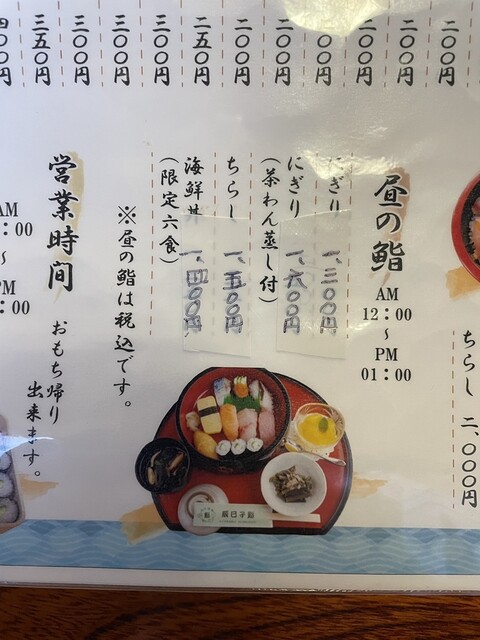 二〇〇円
二〇〇円
二〇〇円
二〇〇円
二〇〇円
二〇〇円
二五〇円
三〇〇円
三〇〇円
三〇〇円
三五〇円
四〇〇円
ちらし 二、〇〇〇円
昼の鮨
AM
12:00
～
PM
01:00
にぎり 一、三〇〇円
にぎり 一、六〇〇円
(茶わん蒸し付)
ちらし 一、五〇〇円
海鮮丼 一、四〇〇円
(限定六食)
※昼の鮨は税込です。
営業時間
おもち帰り
出来ます。
AM
:00
～
:00